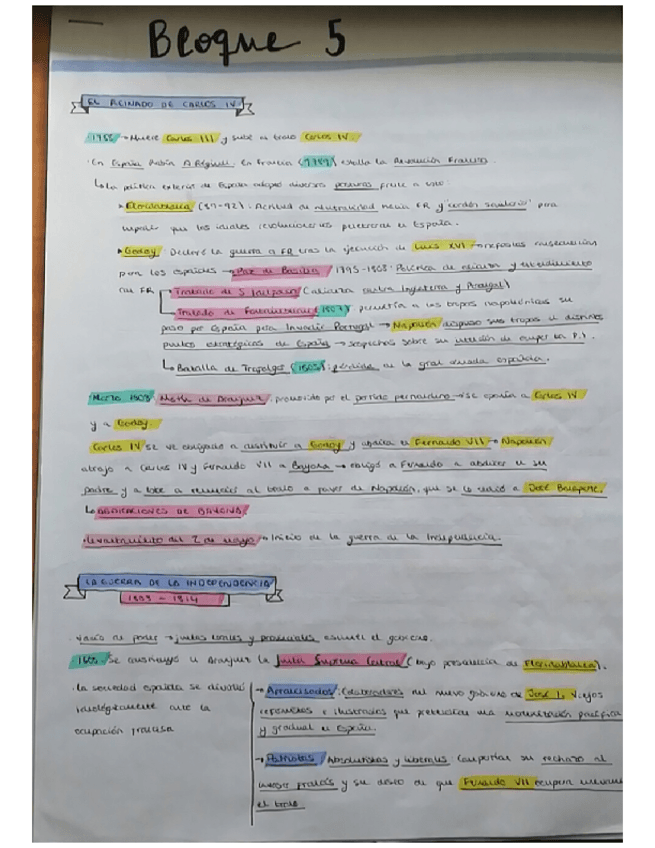 Bloque 5
EL REINADO DE CARLOS IV
1788 → Muere Carlos III y sube al trono Carlos IV.
· En España había A. Régimen. En Francia (1789) estalla la Revolución Francesa.
↳ La política exterior de España adoptó diversas posturas frente a esto:
Floridablanca (89-92): Actitud de neutralidad hacia FR y "cordón sanitario" para
impedir que los ideales revolucionarios penetraran en España.
Godoy: Declaró la guerra a FR tras la ejecución de Luis XVI →
para los españoles → Paz de Basilea / 1795-1808: Política de alianza y entendimiento
con FR → Tratado de S. Ildefonso (alianza contra Inglaterra y Portugal)
→ Tratado de Fontainebleau (1807): permitía a las tropas napoleónicas su
paso por España para invadir Portugal → Napoleón dispuso sus tropas en distintos
puntos estratégicos de España → sospechas sobre su intención de ocupar la P.I.
↳ Batalla de Trafalgar (1805): pérdida de la gran armada española.
Marzo 1808: Motín de Aranjuez: promovido por el partido fernandino → se oponía a Carlos IV
y a Godoy.
Carlos IV se ve obligado a destituir a Godoy y abdica en Fernando VII → Napoleón
atrajo a Carlos IV y Fernando VII a Bayona → obligó a Fernando a abdicar en su
padre y a este a renunciar al trono a favor de Napoleón, que se lo cedió a José Bonaparte.
↳ ABDICACIONES DE BAYONA
· Levantamiento del 2 de mayo → Inicio de la guerra de la Independencia.
LA GUERRA DE LA INDEPENDENCIA
1808 - 1814
· Vacío de poder → juntas locales y provinciales asumen el gobierno.
· 1808: Se constituyó en Aranjuez la Junta Suprema Central (bajo presidencia de Floridablanca).
· La sociedad española se dividió
ideológicamente ante la
ocupación francesa
→ Afrancesados: Colaboradores del nuevo gobierno de José I. Viejos
reformistas e ilustrados que pretendían una modernización pacífica
y gradual en España.
→ Patriotas: Absolutistas y liberales: Compartían su rechazo al
invasor francés y su deseo de que Fernando VII ocupara
el trono